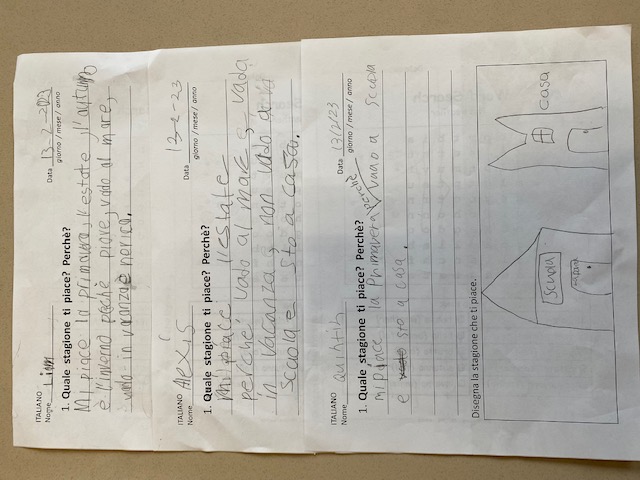 ITALIANO
Nome Liam Data 13-2-2023
giorno / mese / anno
1. Quale stagione ti piace? Perchè?
Mi piace la primavera, l'estate, l'autunno
e l'inverno pechè piace, vado al mare,
in vacanze
ITALIANO
Nome Alexis 13-2-23
giorno / mese / anno
1. Quale stagione ti piace? Perchè?
Mi piace l'estate
perché vado al mare e vado
in vacanza e non vado a
scuola e sto a casa.
ITALIANO
Nome quintin Data 13/2/23
giorno / mese / anno
1. Quale stagione ti piace? Perchè?
mi piace la Phimavera perchè vado a scuola
e sto a casa.
Disegna la stagione che ti piace.
Scuola
casa